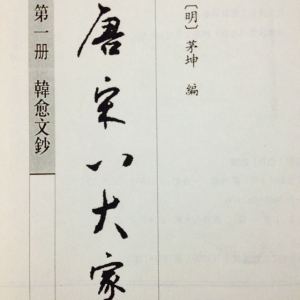 [明]茅坤 编
唐宋八大家
第一册 韓愈文鈔